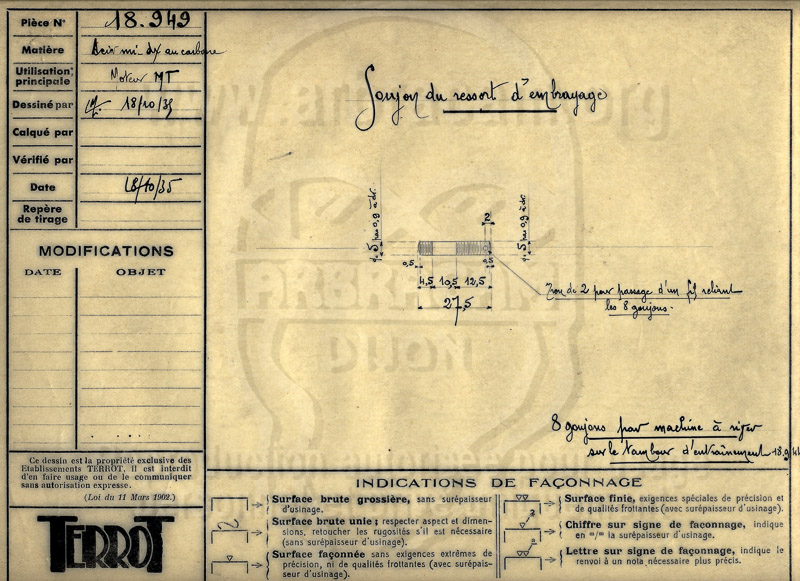 Pièce N° 18.949
Matière Acier mi-dx au carbone
Utilisation principale Moteur MT
Dessiné par 18/10/35
Calqué par
Vérifié par
Date 18/10/35
Repère de tirage
MODIFICATIONS
DATE OBJET
Goujon du ressort d'embrayage
φ. 5 pas 0,9 à dr.
2
φ. 5 pas 0,9 à dr.
0,5
0,5
4,5 10,5 12,5
27,5
Trou de 2 pour passage d'un fil reliant
les 8 goujons.
8 goujons par machine à river
sur le tambour d'entraînement 18.94
Ce dessin est la propriété exclusive des
Etablissements TERROT, il est interdit
d'en faire usage ou de le communiquer
sans autorisation expresse.
(Loi du 11 Mars 1902.)
TERROT
INDICATIONS DE FAÇONNAGE
Surface brute grossière, sans surépaisseur
d'usinage.
Surface brute unie ; respecter aspect et dimen-
sions, retoucher les rugosités s'il est nécessaire
(sans surépaisseur d'usinage).
Surface façonnée sans exigences extrêmes de
précision, ni de qualités frottantes (avec surépais-
seur d'usinage).
Surface finie, exigences spéciales de précision et
de qualités frottantes (avec surépaisseur d'usinage).
Chiffre sur signe de façonnage, indique
en m/m la surépaisseur d'usinage.
Lettre sur signe de façonnage, indique le
renvoi à un nota nécessaire plus précis.